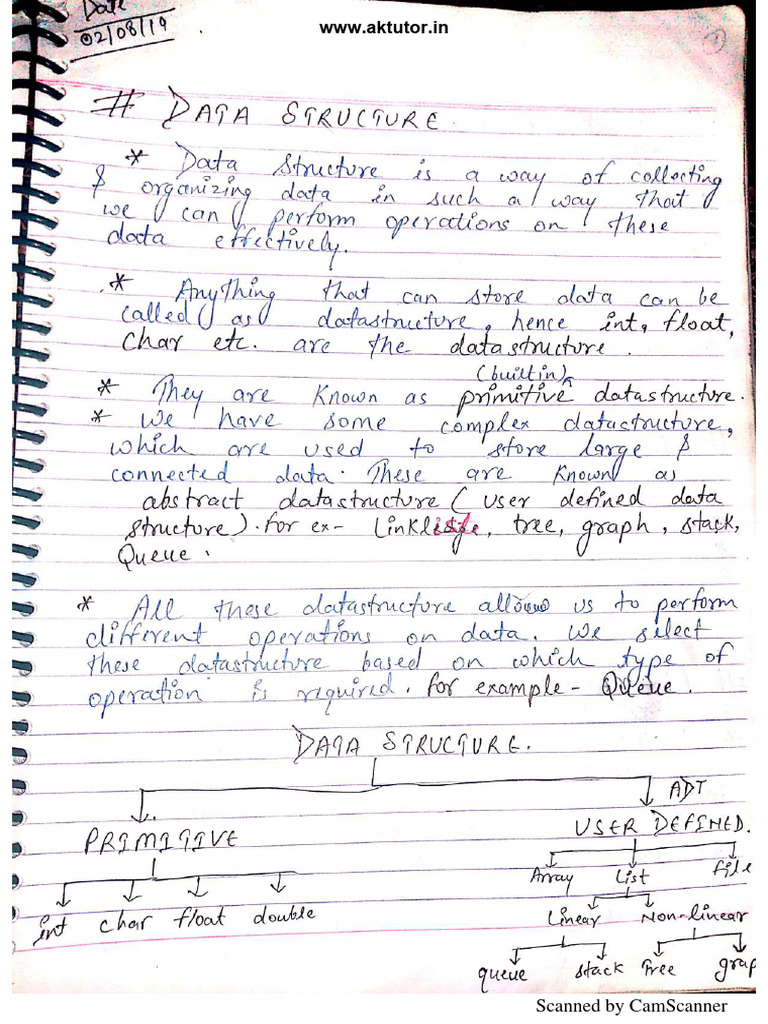 Date
02/08/19
www.aktutor.in
1
# DATA STRUCTURE
* Data Structure is a way of collecting
& organizing data in such a way that
we can perform operations on these
data effectively.
* Anything that can store data can be
called as datastructure, hence int, float,
char etc. are the datastructure.
(builtin)
* They are known as primitive datastructure.
* We have some complex datastructure,
which are used to store large &
connected data. These are known as
abstract datastructure (user defined data
structure). for ex- linklist, tree, graph, stack,
Queue.
* All these datastructure allows us to perform
different operations on data. We select
these datastructure based on which type of
operation is required. for example - Queue.
DATA STRUCTURE.
ADT
PRIMITIVE USER DEFINED.
Array List file
int char float double
Linear Non-linear
queue stack Tree grap
Scanned by CamScanner